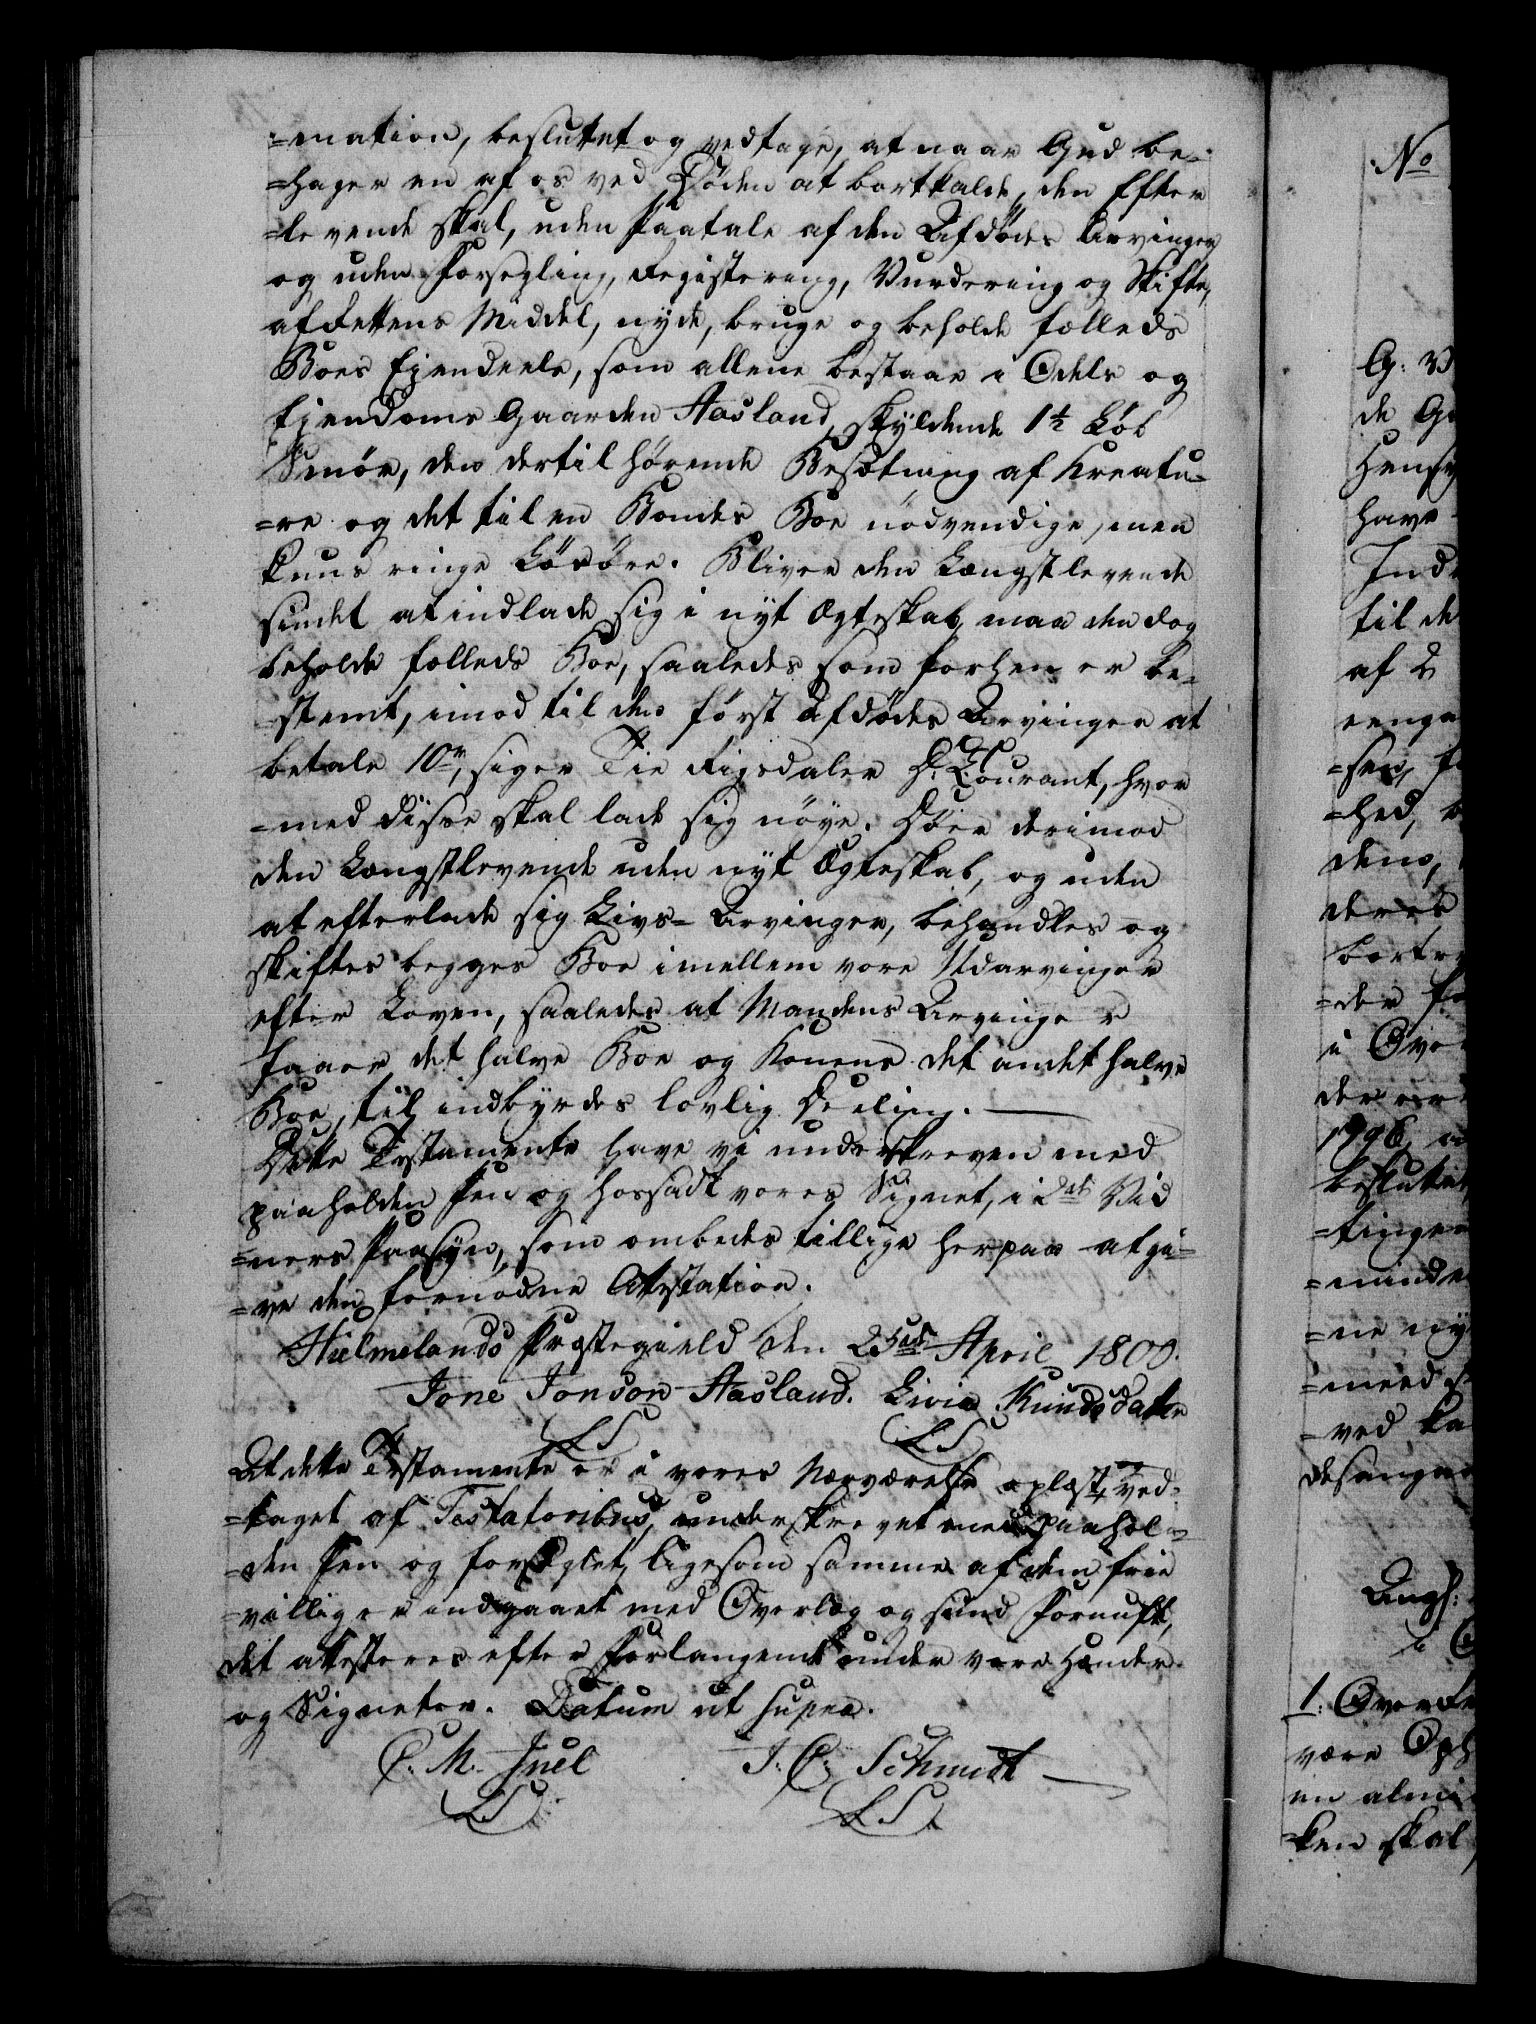 =mation, besluttet og vedtage, at naar Gud be-
=hager en af os ved Døden at bortkalde, den Efter
=levende skal, uden Paatale af den Afdødes Arvinger
og uden Forsegling, Registering, Vurdering og Skifte,
af Rettens Middel, nyde, bruge og beholde fælleds
Boes Ejendeele, som allene bestaar i Odels og
Ejendoms Gaarden Aasland, skyldende 1½ Løb
Smør, den dertil hørende Besætning af Kreatu-
=re og det til en Bondes Boe nødvendige, men
kuns ringe Løsøre. Bliver den Længstlevende
sindet at indlade sig i nyt Ægteskab, maa den dog
beholde fælleds Boe, saaledes som forhen er be-
=stemt, imod til den først Afdødes Arvinger at
betale 10 rd, siger Tie Rigsdaler D: Courant, hvor
=med disse skal lade sig nøye. Døer derimod
den Længstlevende uden nyt Ægteskab, og uden
at efterlade sig Livs-Arvinger, behandles og
skiftes begges Boe imellem vore Udarvinger
efter Loven, saaledes at Mandens Arvinger
faaer det halve Boe og Konens det andet halve
Boe, til indbyrdes lovlig Deeling. —
Dette Testamente have vi underskreven med
paaholden Pen og hossadt vores Signet, i 2de Vid
=ners Paasyn, som ombedes tillige herpaa at gi-
=ve den fornødne Attestation.
Hielmelands Præstegield den 25de April 1800.
Jone Jonson Aasland. Livia Knudsdatter
LS LS
At dette Testamente er i vores Nærværelse oplæst, ved-
=taget af Testatoribus, underskrevet med paahol-
=den Pen og forseglet, ligesom samme af dem frie
=villig er indgaaet med Overlæg og sund Fornuft,
det attesteres efter Forlangende under vore Hænder
og Signeter. Datum ut supra.
C. M. Juel J. C. Schmidt
LS LS
No
G: V
de G
Hensy
have
Ind
til de
af 2
=hed,
dens,
deres
=der
i Ove
besluttet
=tinger
=ne ny
=ved
Angl:
1: Overs
være Oph
en almi
=ken skal